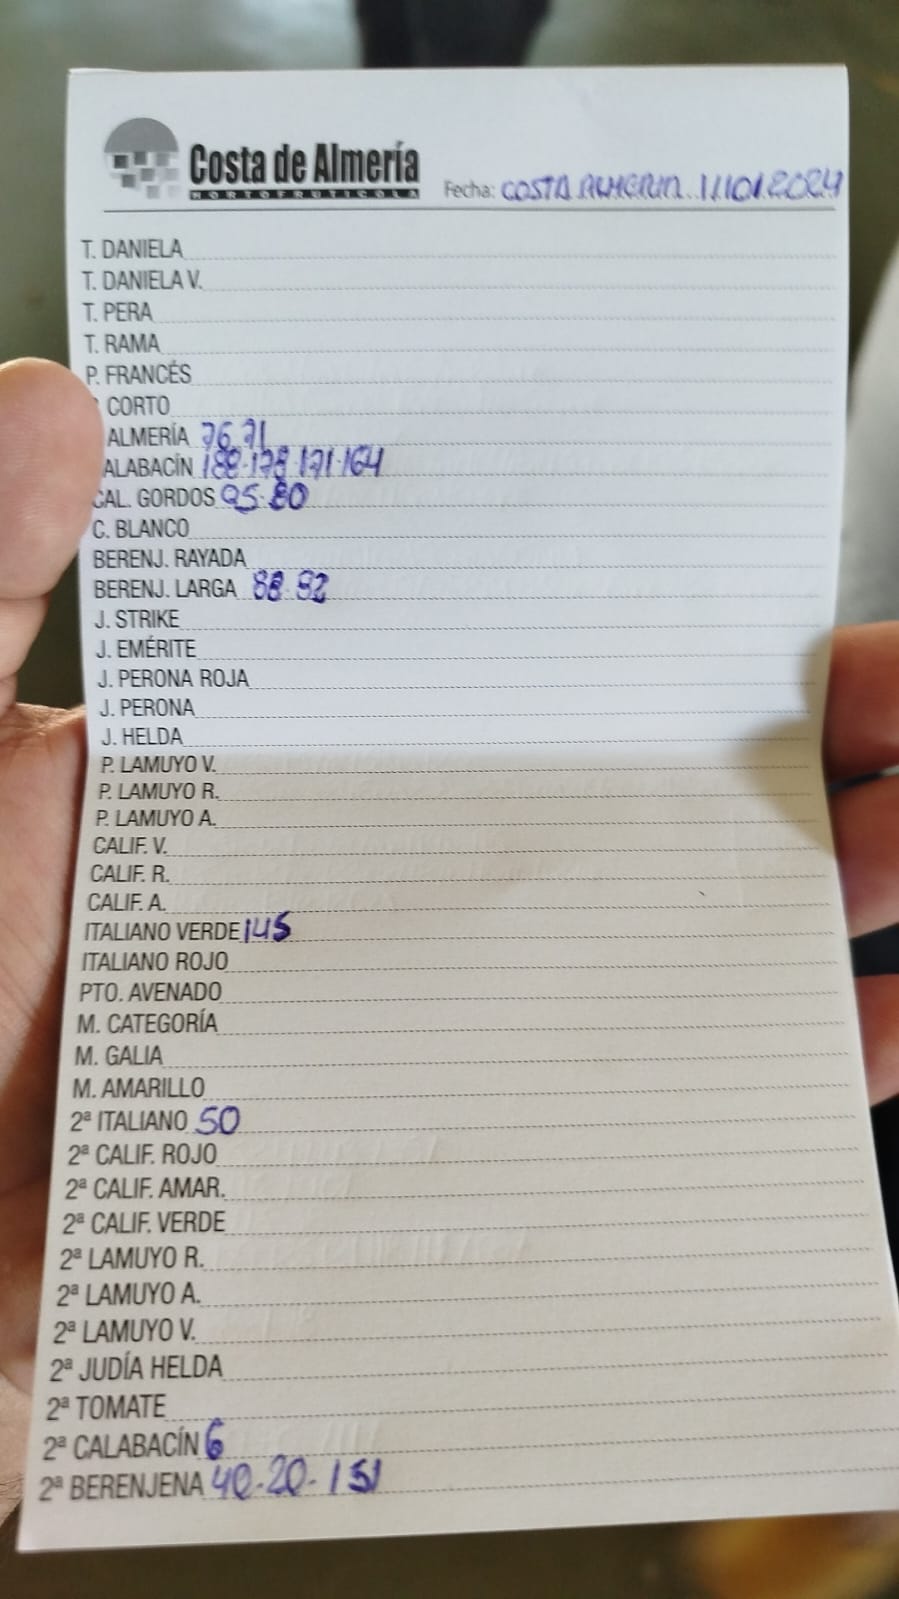 Costa de Almería
HORTOFRUTICOLA
Fecha: COSTA ALMERIA 11/01/2024
T. DANIELA
T. DANIELA V.
T. PERA
T. RAMA
P. FRANCÉS
CORTO
ALMERÍA 76 71
ALABACÍN 188-178-171-164
CAL. GORDOS 95-80
C. BLANCO
BERENJ. RAYADA
BERENJ. LARGA 88-82
J. STRIKE
J. EMÉRITE
J. PERONA ROJA
J. PERONA
J. HELDA
P. LAMUYO V.
P. LAMUYO R.
P. LAMUYO A.
CALIF. V.
CALIF. R.
CALIF. A.
ITALIANO VERDE 145
ITALIANO ROJO
PTO. AVENADO
M. CATEGORÍA
M. GALIA
M. AMARILLO
2ª ITALIANO 50
2ª CALIF. ROJO
2ª CALIF. AMAR.
2ª CALIF. VERDE
2ª LAMUYO R.
2ª LAMUYO A.
2ª LAMUYO V.
2ª JUDÍA HELDA
2ª TOMATE
2ª CALABACÍN 6
2ª BERENJENA 40-20-151